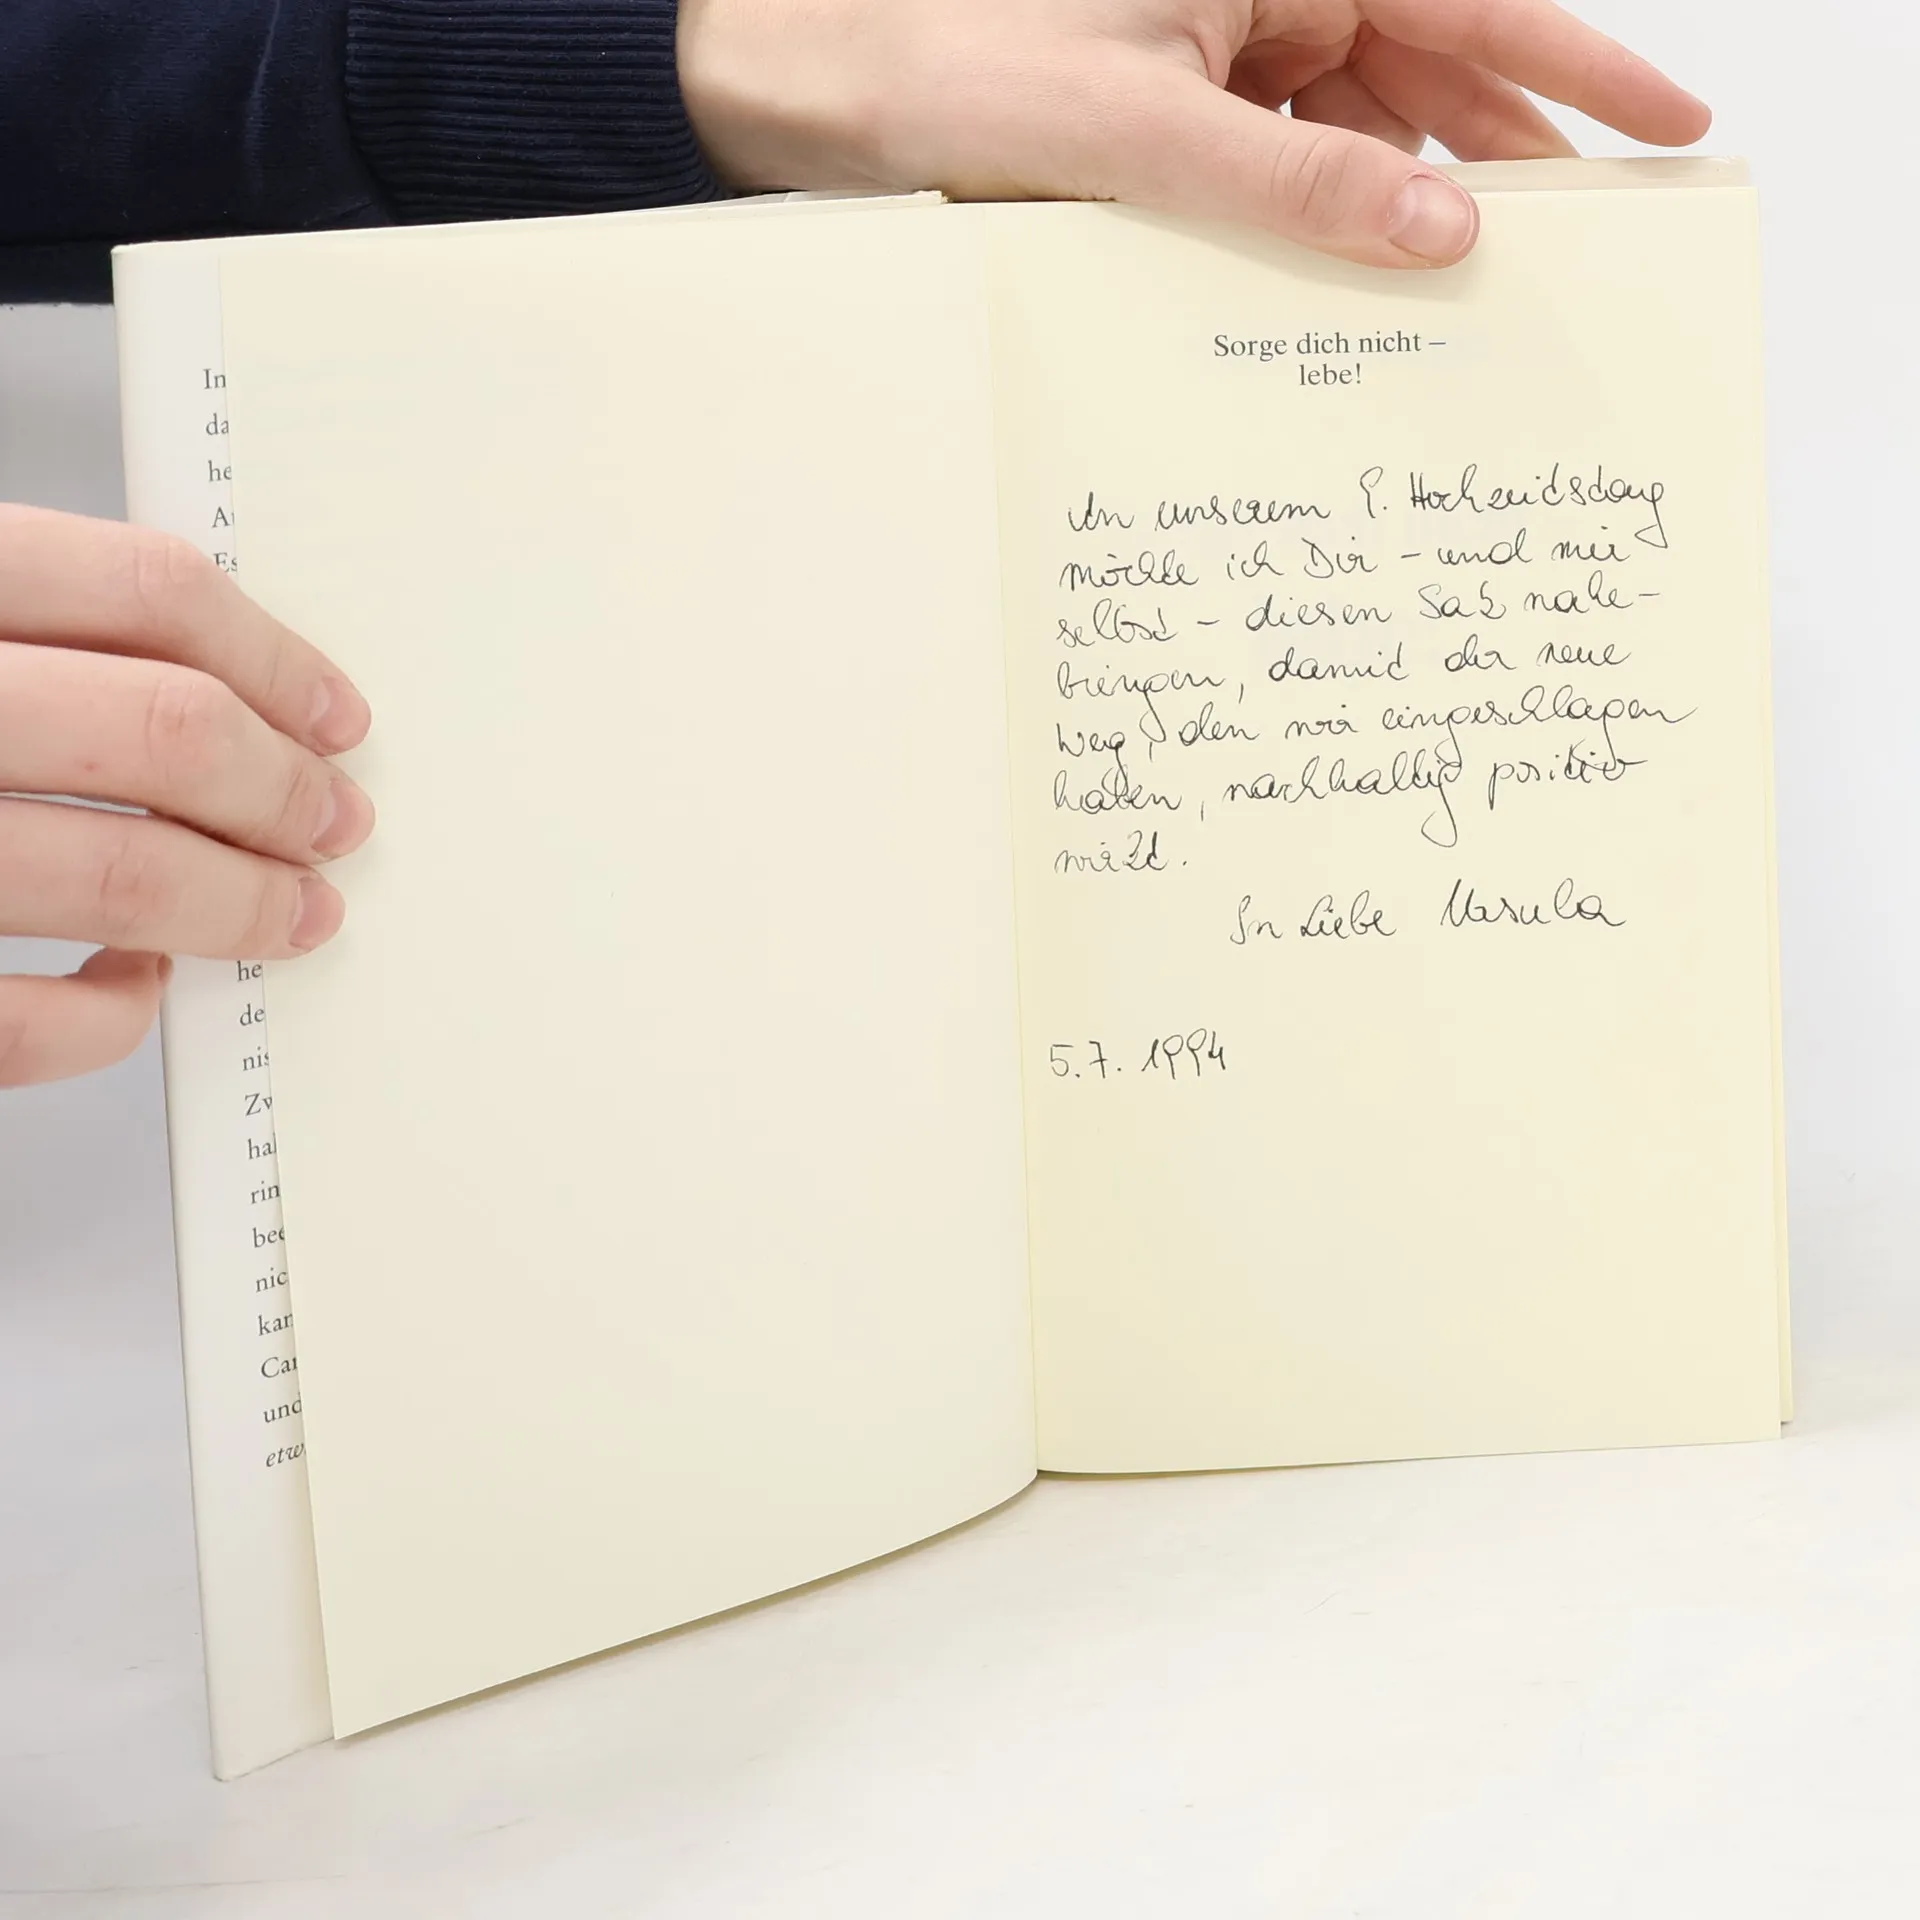 In
da
he
Es
he
de
nis
Zw
hal
rin
bee
nic
kan
Car
und
etw
Sorge dich nicht –
lebe!
An unserem 9. Hochzeitstag
möchte ich Dir – und mir
selbst – diesen Satz nahe-
bringen, damit der neue
Weg, den wir eingeschlagen
haben, nachhaltig positiv
wird.
In Liebe Ursula
5.7. 1994